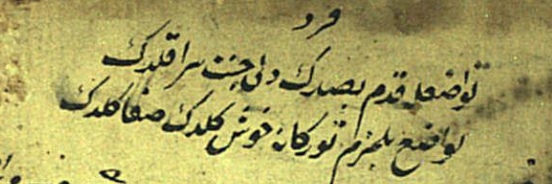 فرد
تواضعله قدم بصدك دلی جنت سرا قلدك
تواضع بلمزم توركانه خوش كلدك صفا كلدك